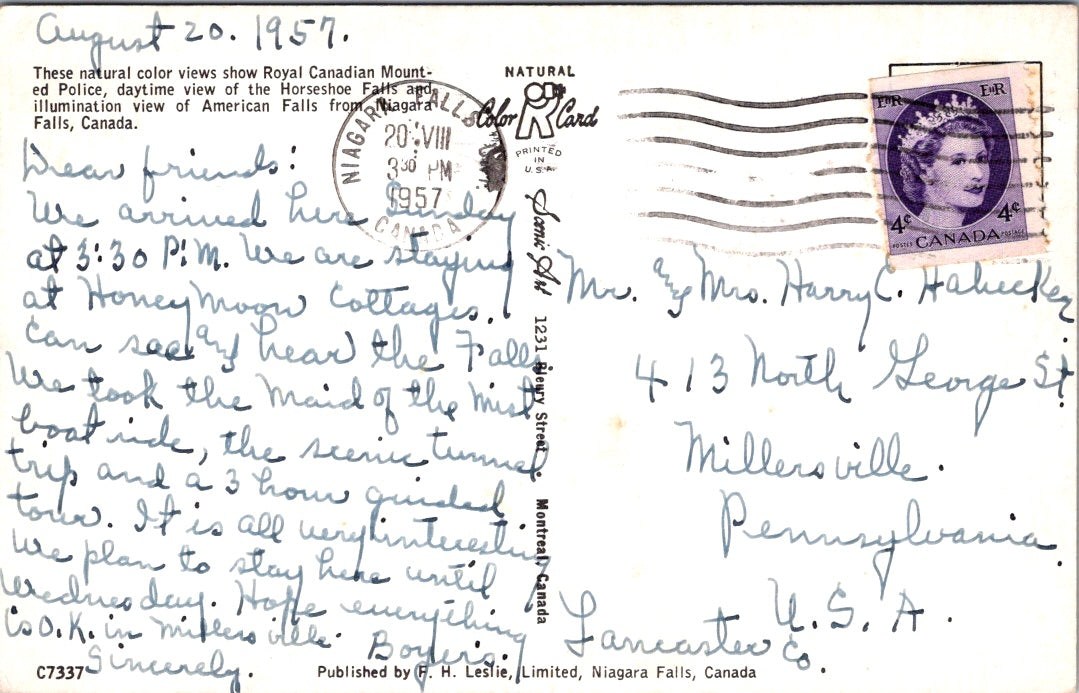 August 20. 1957.
These natural color views show Royal Canadian Mount-
ed Police, daytime view of the Horseshoe Falls and
illumination view of American Falls from Niagara
Falls, Canada.
Dear friends:
We arrived here Sunday
at 3:30 P.M. We are staying
at Honey Moon Cottages.
Can see and hear the Falls
We took the Maid of the Mist
boat ride, the scenic tunnel
trip and a 3 hour guided
tour. It is all very interesting
We plan to stay here until
Wednesday. Hope everything
is O.K. in Millersville.
Sincerely. Boyers.
C7337
Published by F. H. Leslie, Limited, Niagara Falls, Canada
NIAGARA FALLS
20 VIII
3 30 PM
1957
CANADA
NATURAL
Color Card
PRINTED
IN
U.S.A.
Scenic Art 1231 Bleury Street, Montreal, Canada
E II R E II R
4¢ 4¢
POSTES CANADA POSTAGE
Mr. and Mrs. Harry C. Habecker
413 North George St.
Millersville.
Pennsylvania.
U. S. A.
Lancaster Co.